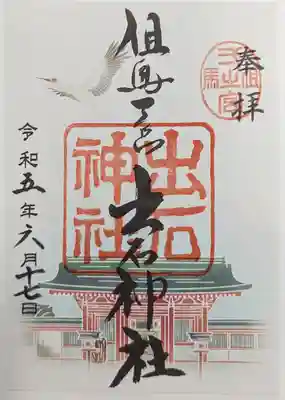 奉拝
但馬一宮
出石神社
出石神社
令和五年六月十七日